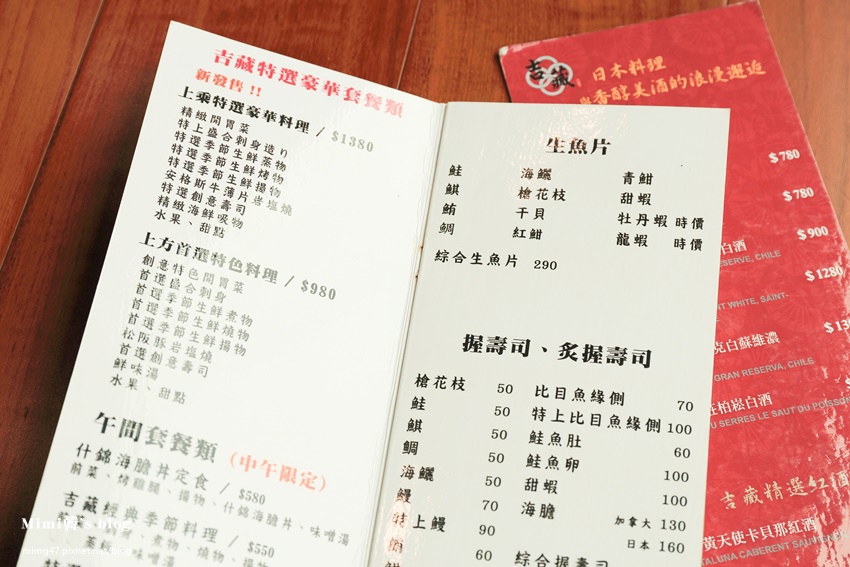 吉藏特選豪華套餐類
新發售!!
上乘特選豪華料理 / $1380
精緻開胃菜
特上盛合刺身造り
特選季節生鮮蒸物
特選季節生鮮烤物
特選季節生鮮揚物
安格斯牛薄片岩塩燒
特選創意壽司
精緻海鮮吸物
水果、甜點
上方首選特色料理 / $980
創意特色開胃菜
首選盛合刺身
首選季節生鮮煮物
首選季節生鮮燒物
首選季節生鮮揚物
松阪豚岩塩燒
首選創意壽司
鮮味湯
水果、甜點
午間套餐類 (中午限定)
什錦海膽丼定食 / $580
前菜、烤雞腿、揚物、什錦海膽丼、味噌湯
吉藏經典季節料理 / $550
煮物、燒物、揚物
味噌湯
生魚片
鮭 海鱺 青魽
鯕 槍花枝 甜蝦
鮪 干貝 牡丹蝦 時價
鯛 紅魽 龍蝦 時價
綜合生魚片 290
握壽司、炙握壽司
槍花枝 50 比目魚緣側 70
鮭 50 特上比目魚緣側 100
鯕 50 鮭魚肚 60
鯛 50 鮭魚卵 100
海鱺 50 甜蝦 100
鰻 70 海膽 加拿大 130
特上鰻 90 日本 160
60 綜合握壽司
吉藏
日本料理
與香醇美酒的浪漫邂逅
$780
$780
白酒 $900
RESERVE, CHILE
$1280
NT WHITE, SAINT-
克白蘇維濃
GRAN RESERVA, CHILE
在柏崧白酒
OU SERRES LE SAUT DU POISSON
吉藏精選紅酒
黃天使卡貝那紅酒
TALUNA CABERENT SAUVIGNON
Mimi韓's blog